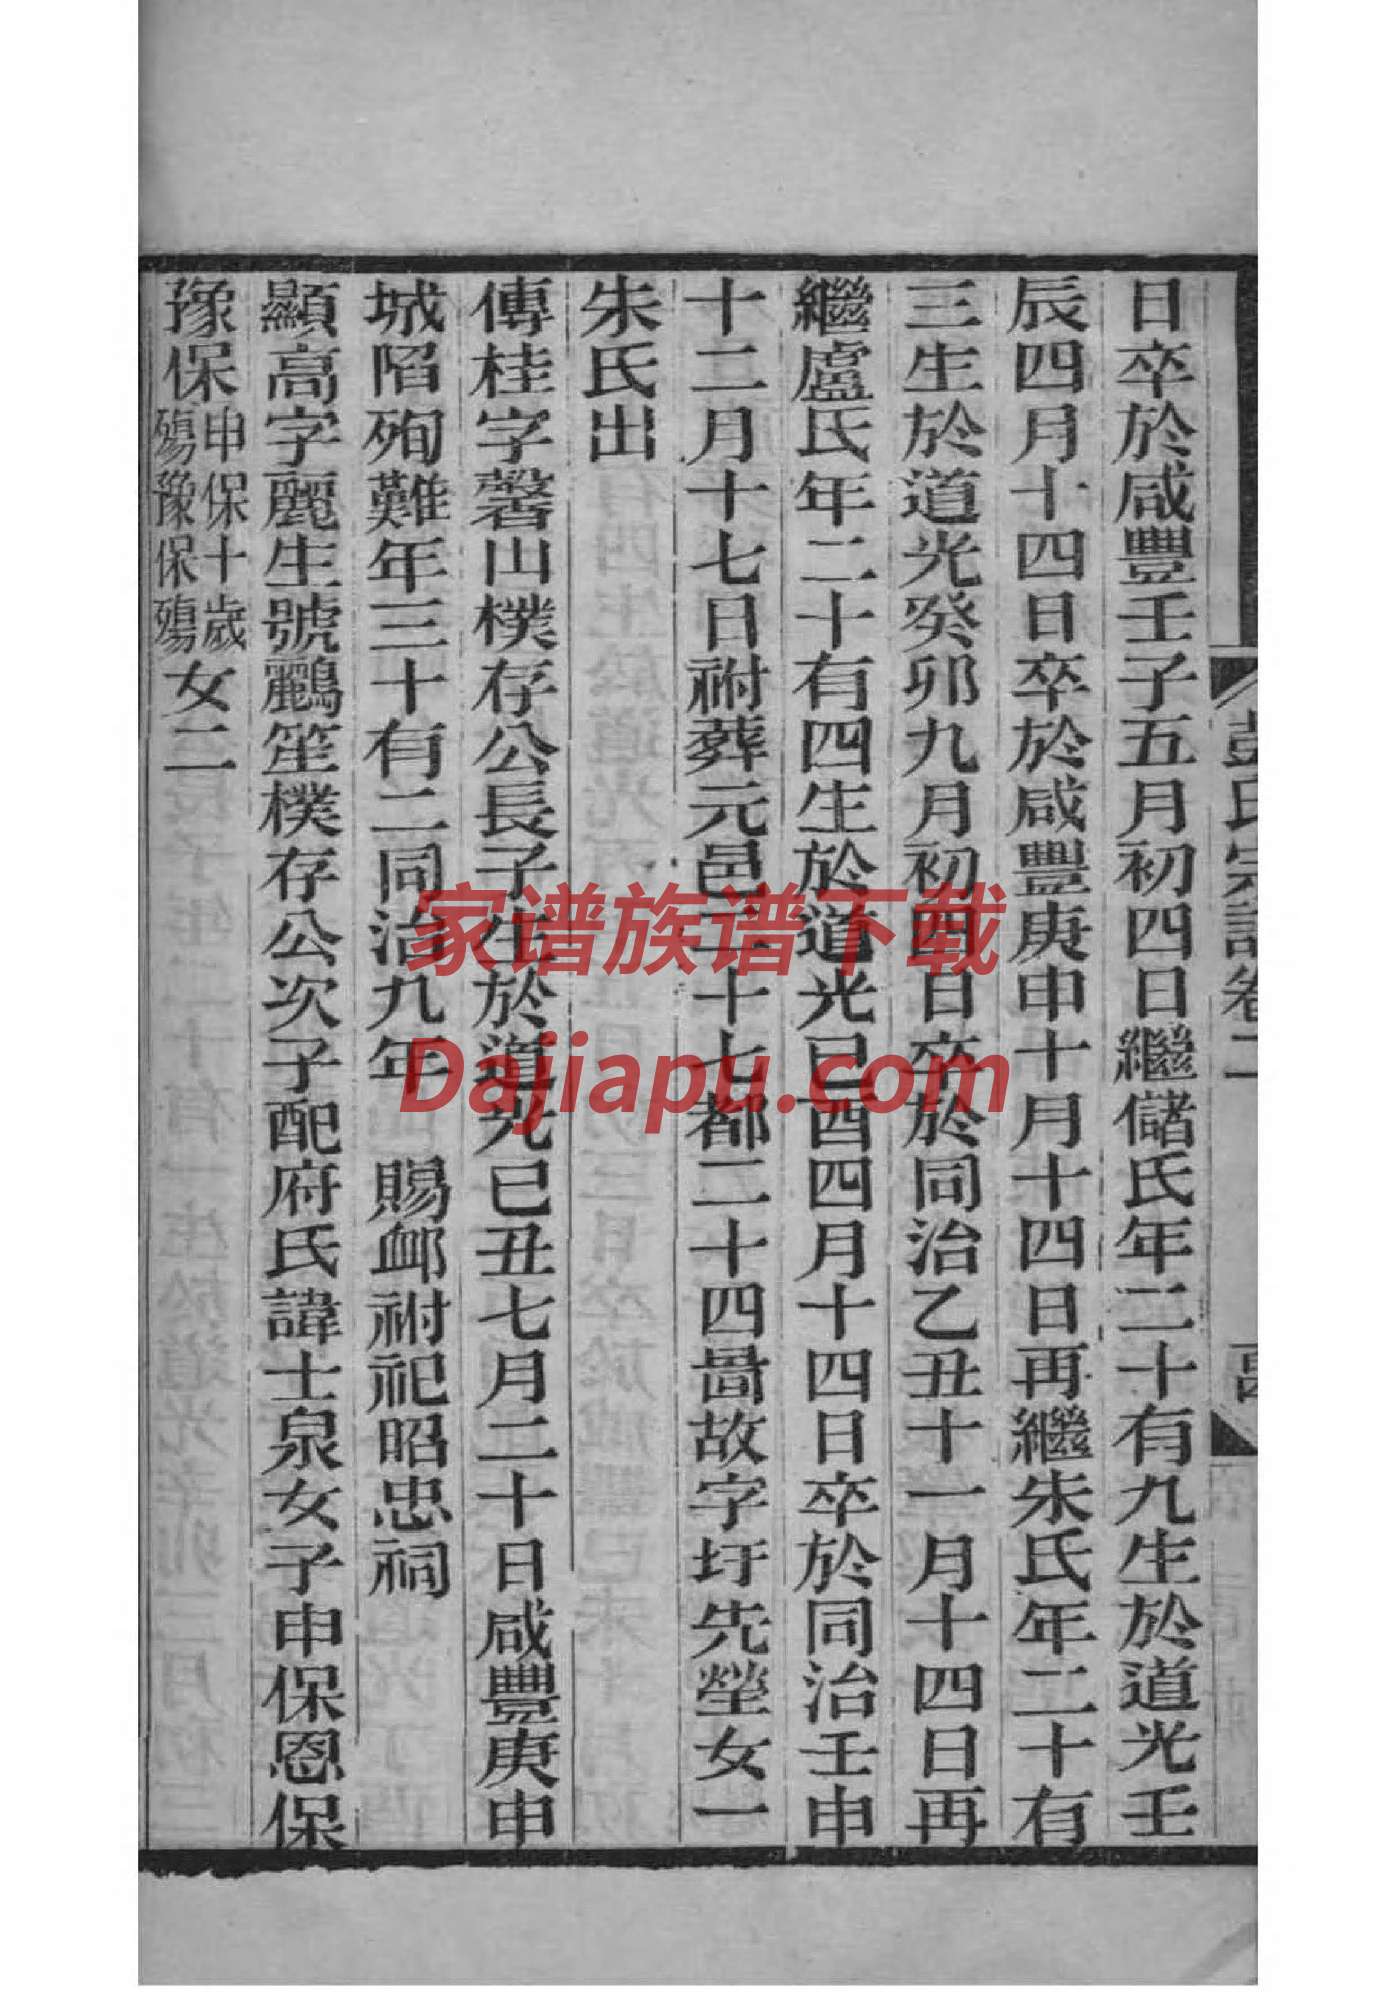 日卒於咸豐壬子五月初四日繼儲氏年二十有九生於道光壬
辰四月十四日卒於咸豐庚申十月十四日再繼朱氏年二十有
三生於道光癸卯九月初四日卒於同治乙丑十一月十四日再
繼盧氏年二十有四生於道光已酉四月十四日卒於同治壬申
十二月十七日祔葬元邑二十七都二十四啚故字圩先塋女一
朱氏出
傳桂字馨山樸存公長子生於道光已丑七月二十日咸豐庚申
城陷殉難年三十有二同治九年 賜衈祔祀昭忠祠
顯高字麗生號鸝笙樸存公次子配府氏諱士泉女子申保恩保
豫保申保十歲殤豫保殤女二
彭氏宗譜卷二
家谱族谱下载
Dajiapu.com